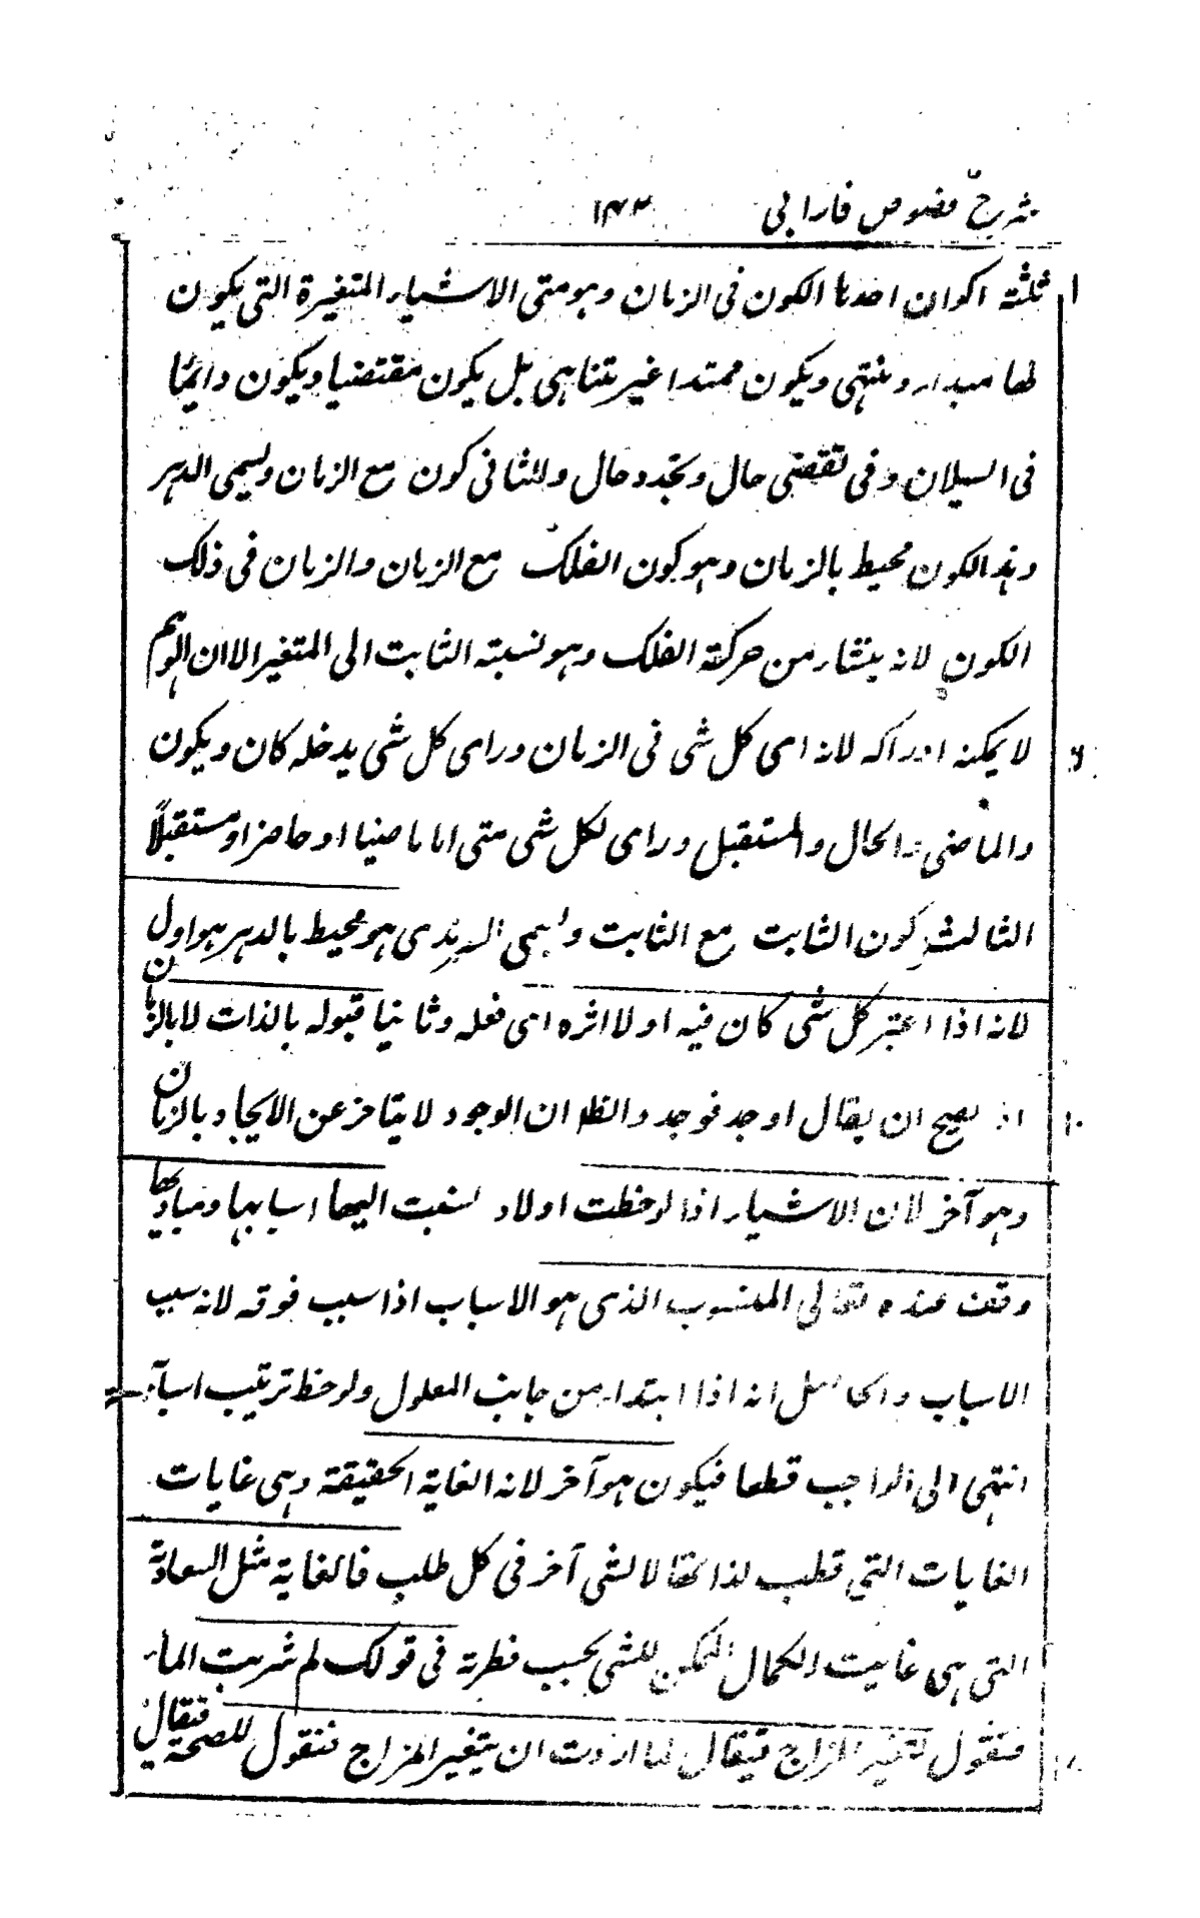 شرح فصوص فارابی ۱۴۲
ثلثة اکوان احدها الکون فی الزمان وهو متی الاشیاء المتغیرة التی یکون
لها مبداء ومنتهی ویکون ممتدا غیر متناهی بل یکون مقتضیا ویکون دائمًا
فی السیلان وفی تقضی حال وتجدد حال والثانی کون مع الزمان ویسمی الدهر
وهذ الکون محیط بالزمان وهو کون الفلک مع الزمان والزمان فی ذلک
الکون لانه ینشاء من حرکة الفلک وهو نسبته الثابت الی المتغیر الا ان الوهم
لا یمکنه ادراکه لانه ای کل شی فی الزمان ورای کل شی یدخله کان ویکون
والماضی والحال والمستقبل ورای لکل شی متی اما ماضیا او حاضرا ومستقبلًا
الثالث کون الثابت مع الثابت ویسمی السرمدی هو محیط بالدهر هو اول
لانه اذا اعتبر کل شی کان فیه اولا اثره ای فعله وثانیا قبوله بالذات لا بالزمان
اذ یصح ان یقال اوجد فوجد والظاهر ان الوجود لا یتاخر عن الایجاد بالزمان
وهو آخر لان الاشیاء اذا لوحظت اولاد نسبت الیها اسبابها ومبادیها
وقفت عنده تعالی المنسوب الذی هو الاسباب اذا سبب فوقه لانه سبب
الاسباب والحاصل انه اذا ابتداء من جانب المعلول ولوحظ ترتیب اسبآبه
انتهی الی الواجب قطعا فیکون هو آخر لانه الغایة الحقیقة وهی غایات
الغایات التی تطلب لذاتها لا لشی آخر فی کل طلب فالغایة مثل السعادة
التی هی غایت الکمال الممکن للشی بحسب فطرته فی قولک لم شربت الماء
فنقول لتغیر المزاج فیقال لما اردت ان یتغیر المزاج فنقول للصحة فیقال